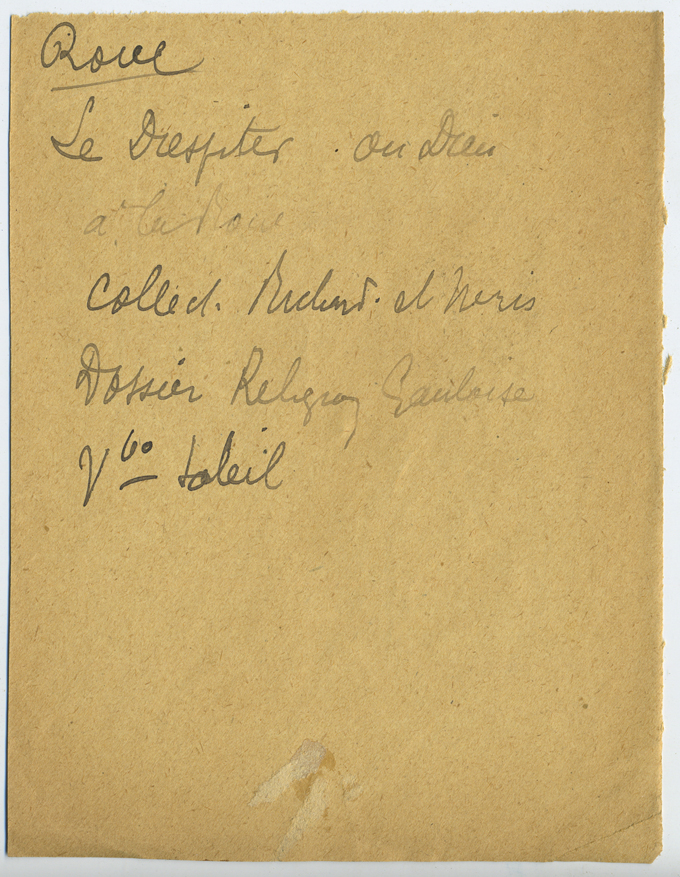 Roue
Le Diespiter ou Dieu
à la Roue
Collect. Richard. et Neris
Dossier Religion Gauloise
Vbo Soleil